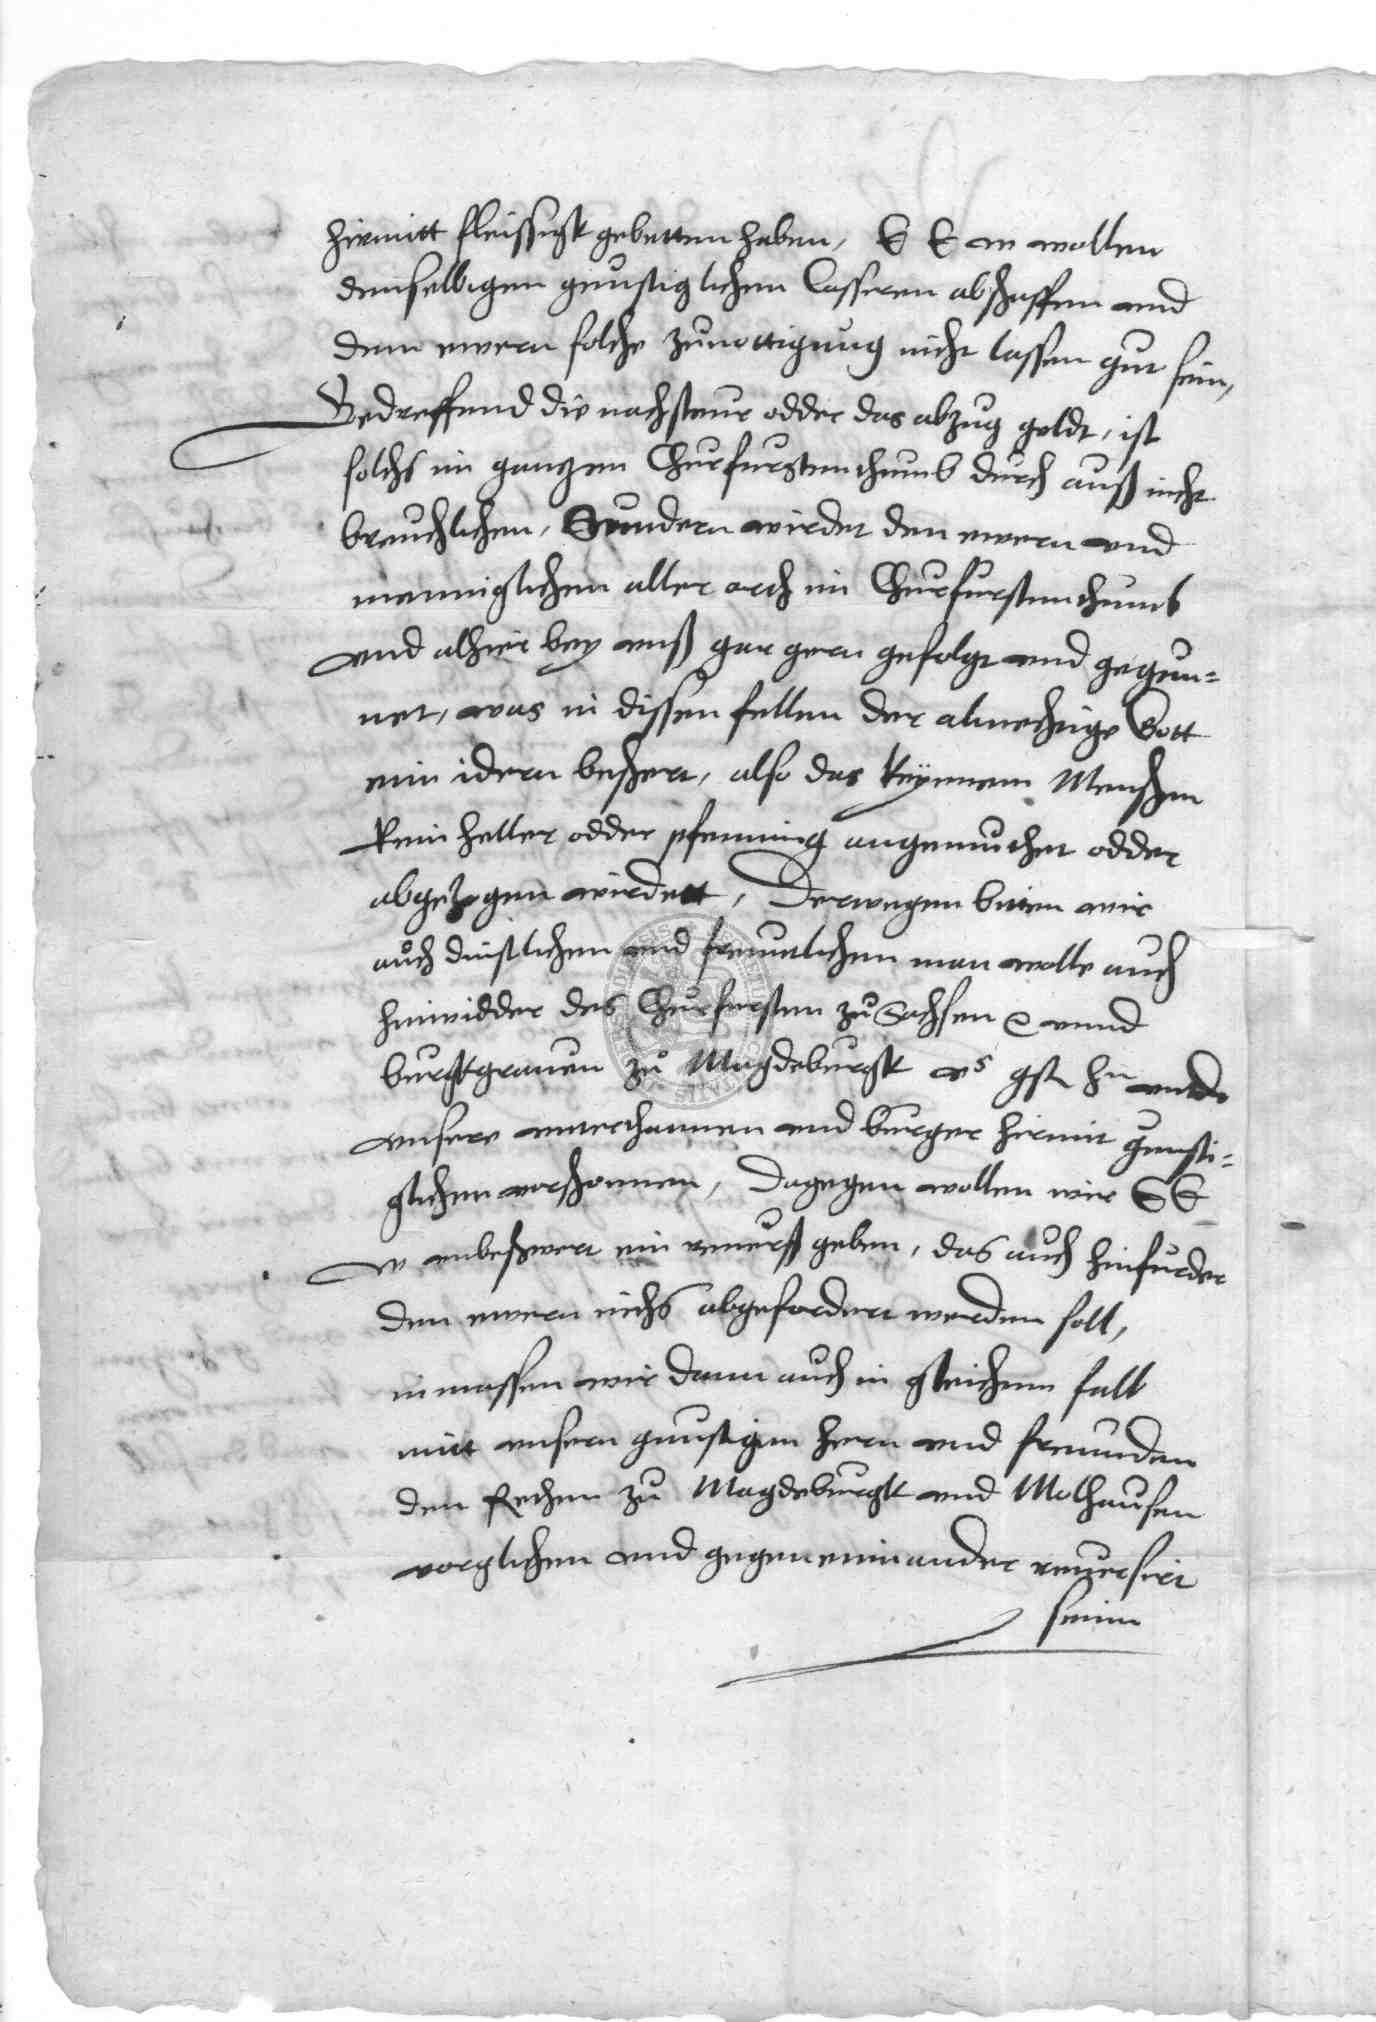 hirmitt fleissigk gebetten haben, E E w wollen
demselbigen gunstiglichen lassen abschaffen vnd
dem ewern solche zunottigung nicht lassen gut sein,
Bedreffend die nachsteur odder das abzug geldt, ist
solchs im gantzen Churfurstenthumb durch auß nicht
breuchlichen, Sundern wirdet den ewern vnd
menniglichen aller orth im Churfurstenthumb
vnd alhier bey vnß gar gern gefolgt vnd gegun-
net, was in dissen fellen der almechtige Gott
eim idern beschert, also das keynem Menschen
kein heller odder pfenning angemuthet odder
abgezogen wirdett, Derwegen bitten wir
auch dinstlichen vnd freuntlichen man wolle auch
hinwidder des Churfursten zu Sachsen vnnd
burgkgrauen zu Magdeburgk gst hn
vnsere vnterthannen vnd burger hirmit gunsti-
glichen vorschonnen, Dagegen wollen wir E E
w vnbeschwert ein reuerß geben, das auch hinfurder
den ewern nichs abgefordert werden soll,
inmassen wir dann auch in gleichem fall
mitt vnsern gunstigen hern vnd freunden
den Rethen zu Magdeburgk vnd Molhausen
vorglichen vnd gegen einander reuersirt
seinn